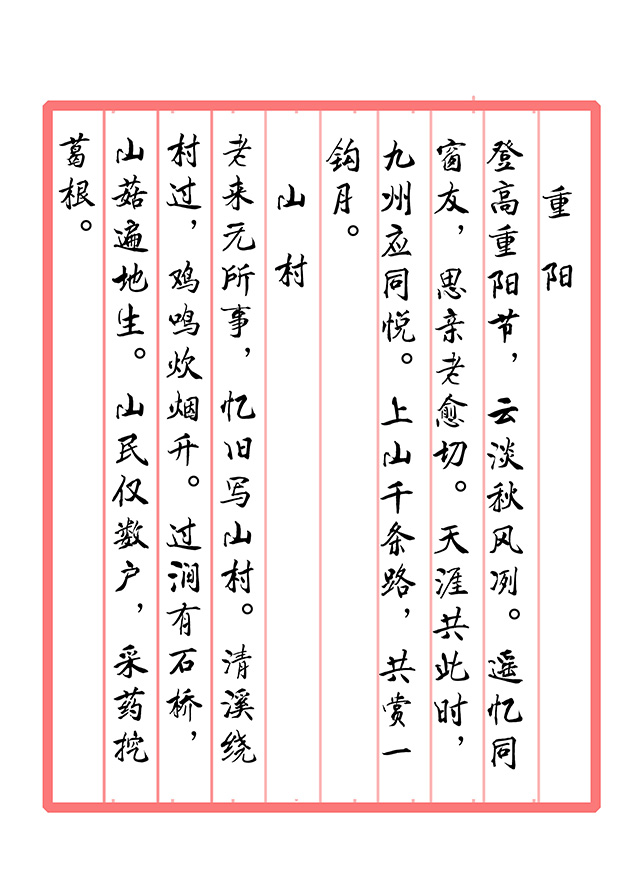 重阳
登高重阳节，云淡秋风冽。遥忆同
窗友，思亲老愈切。天涯共此时，
九州应同悦。上山千条路，共赏一
钩月。
山村
老来无所事，忆旧写山村。清溪绕
村过，鸡鸣炊烟升。过涧有石桥，
山菇遍地生。山民仅数户，采药挖
葛根。